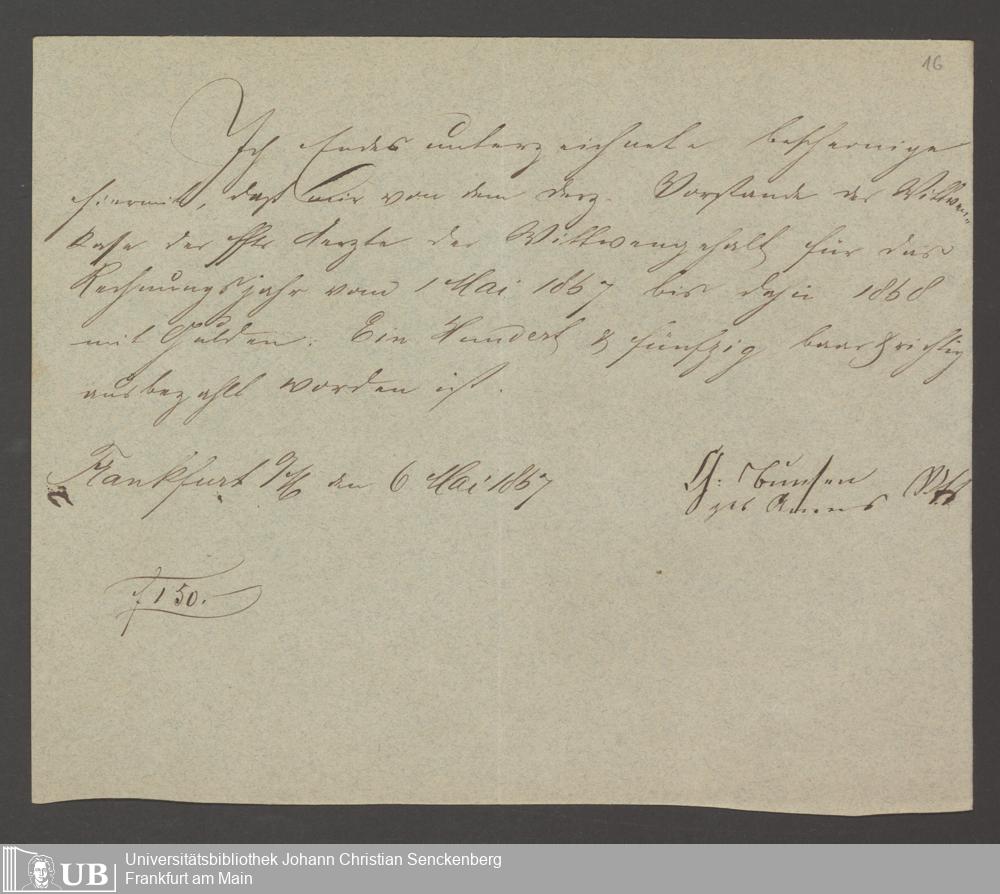 16
Ich Endes unterzeichnete bescheinige
hiermit, daß mir von dem derz. Vorstande der Wittwen-
kasse der Aerzte der Wittwengehalt für das
Rechnungsjahr vom 1 Mai 1867 bis dahin 1868
mit Gulden: Ein Hundert & fünfzig baar & richtig
ausbezahlt worden ist.
Frankfurt a/M den 6 Mai 1867
Ch: Bunsen
f 150.-
Universitätsbibliothek Johann Christian Senckenberg
Frankfurt am Main
UB